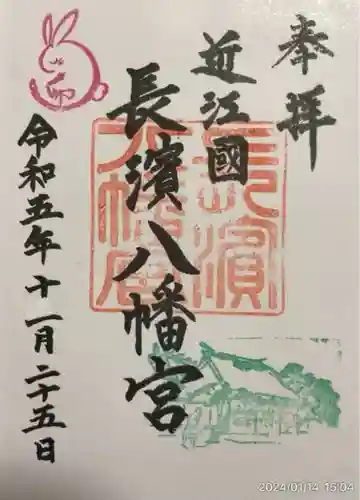 奉拝
近江國
長濱八幡宮
令和五年十一月二十五日
長濱
八幡宮
2024/01/14 15:04